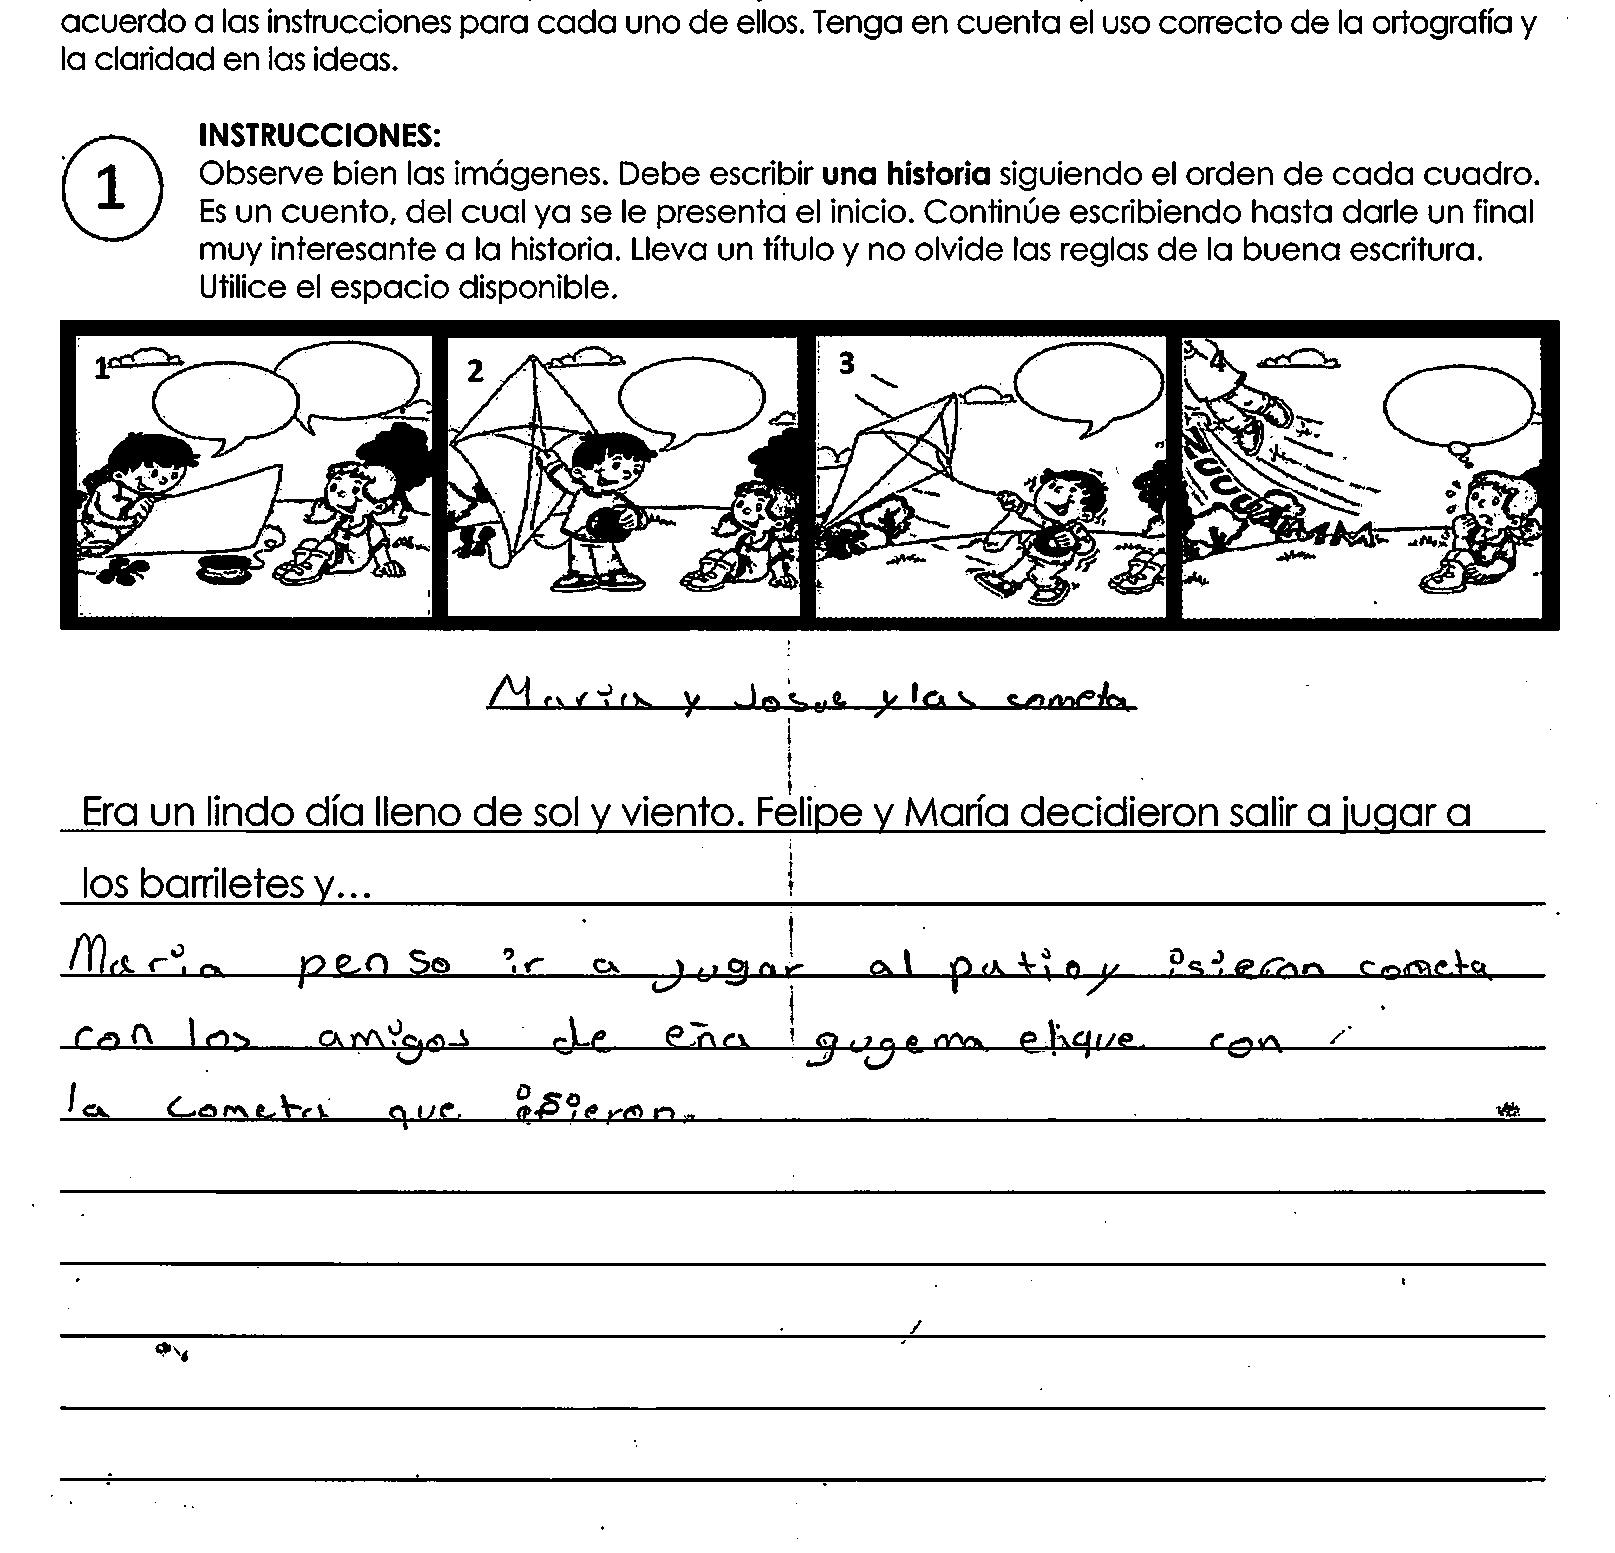 acuerdo a las instrucciones para cada uno de ellos. Tenga en cuenta el uso correcto de la ortografía y
la claridad en las ideas.
INSTRUCCIONES:
1
Observe bien las imágenes. Debe escribir una historia siguiendo el orden de cada cuadro.
Es un cuento, del cual ya se le presenta el inicio. Continúe escribiendo hasta darle un final
muy interesante a la historia. Lleva un título y no olvide las reglas de la buena escritura.
Utilice el espacio disponible.
1 2 3 4
Maria y Josue y las cometa
Era un lindo día lleno de sol y viento. Felipe y María decidieron salir a jugar a
los barriletes y...
Maria penso ir a jugar al patio y isieron cometa
con los amigos de eña gugema con
la cometa que isieron.